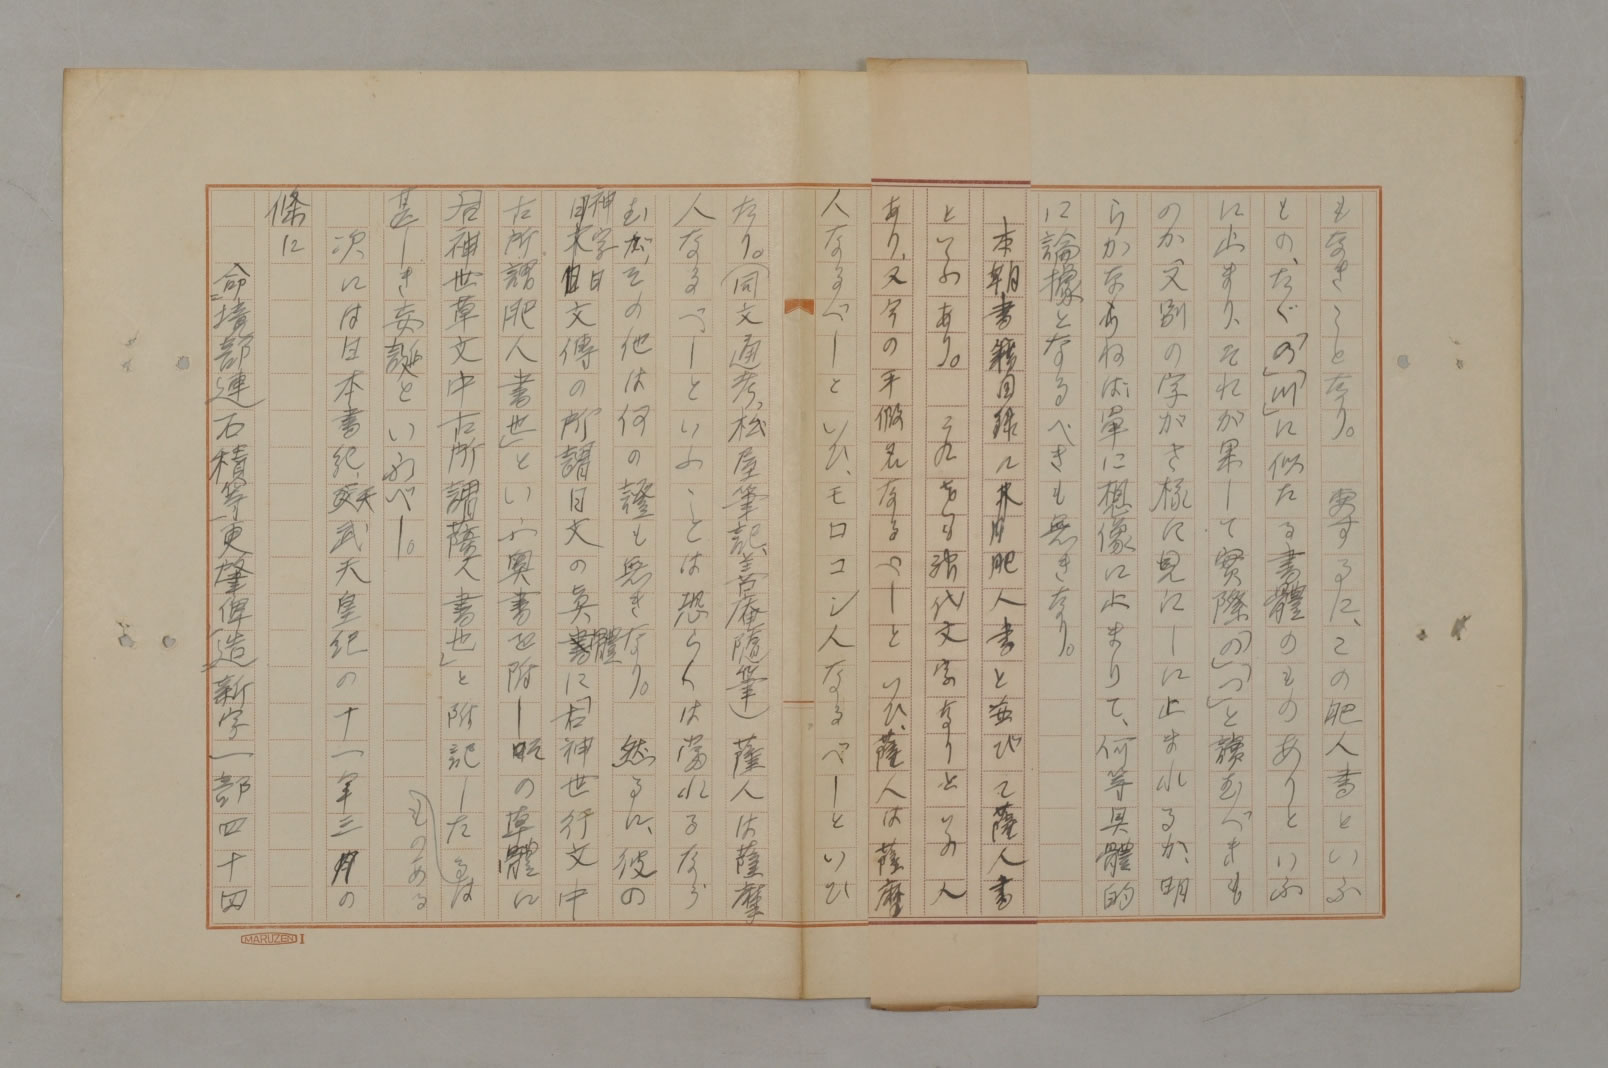 もなきことなり。　要するに、この肥人書といふ
もの、たゞ「の」「川」に似たる書體のものありといふ
に止まり、それが果して實際「の」「つ」と讀むべきも
のか、又別の字がさ様に見にしに止まれるか、明
らかならねば單に想像に止まりて、何等具體的
に論據となるべきも無きなり。
本朝書籍目録に肥人書と並びて薩人書
といふあり。これをも神代文字なりといふ人
あり、又今の平假名なるべしといひ、薩人は薩摩
人なるべしといひ、モロコシ人なるべしといひ
たり。(同文通考、松屋筆記、善庵隨筆)薩人は薩摩
人なるべしといふことは恐らくは當れるなら
むが、その他は何の證も無きなり。　然るに、彼の
神字日文傳の所謂日文の眞書體に「右神世行文中
古所謂肥人書也」といふ奥書を附しの草體に
右神世草文中古所謂薩人書也」と附記したるは
甚しき妄誕といふべし。
ものある
次には日本書紀、天武天皇紀の十一年三月の
條に
命境部連石積等更肇俾造新字一部四十四
MARUZEN I